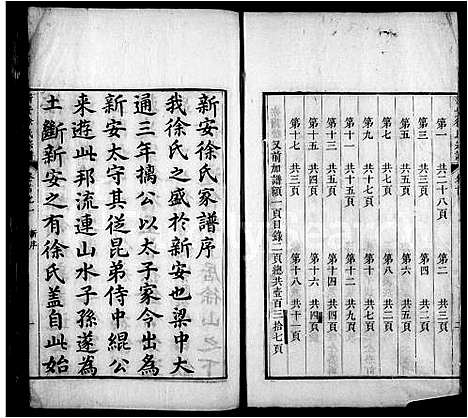 第一 共二十八頁
第二 共三頁
第三 共四頁
第四 共二頁
第五 共五頁
第六 共二頁
第七 共六頁
第八 共五頁
第九 共十七頁
第十 共七頁
第十一 共十頁
第十二 共九頁
第十三 共五頁
第十四 共十頁
第十五 共四頁
第十六 共四頁
第十七 共四頁
第十八 共十一頁
又前加譜額一頁目錄二頁總共壹百三拾七頁
新安徐氏家譜序
我徐氏之盛於新安也梁中大
通三年摛公以太子家令出為
新安太守其從昆弟侍中緄公
來遊此邦流連山水子孫遂為
土斷新安之有徐氏蓋自此始
新序
一